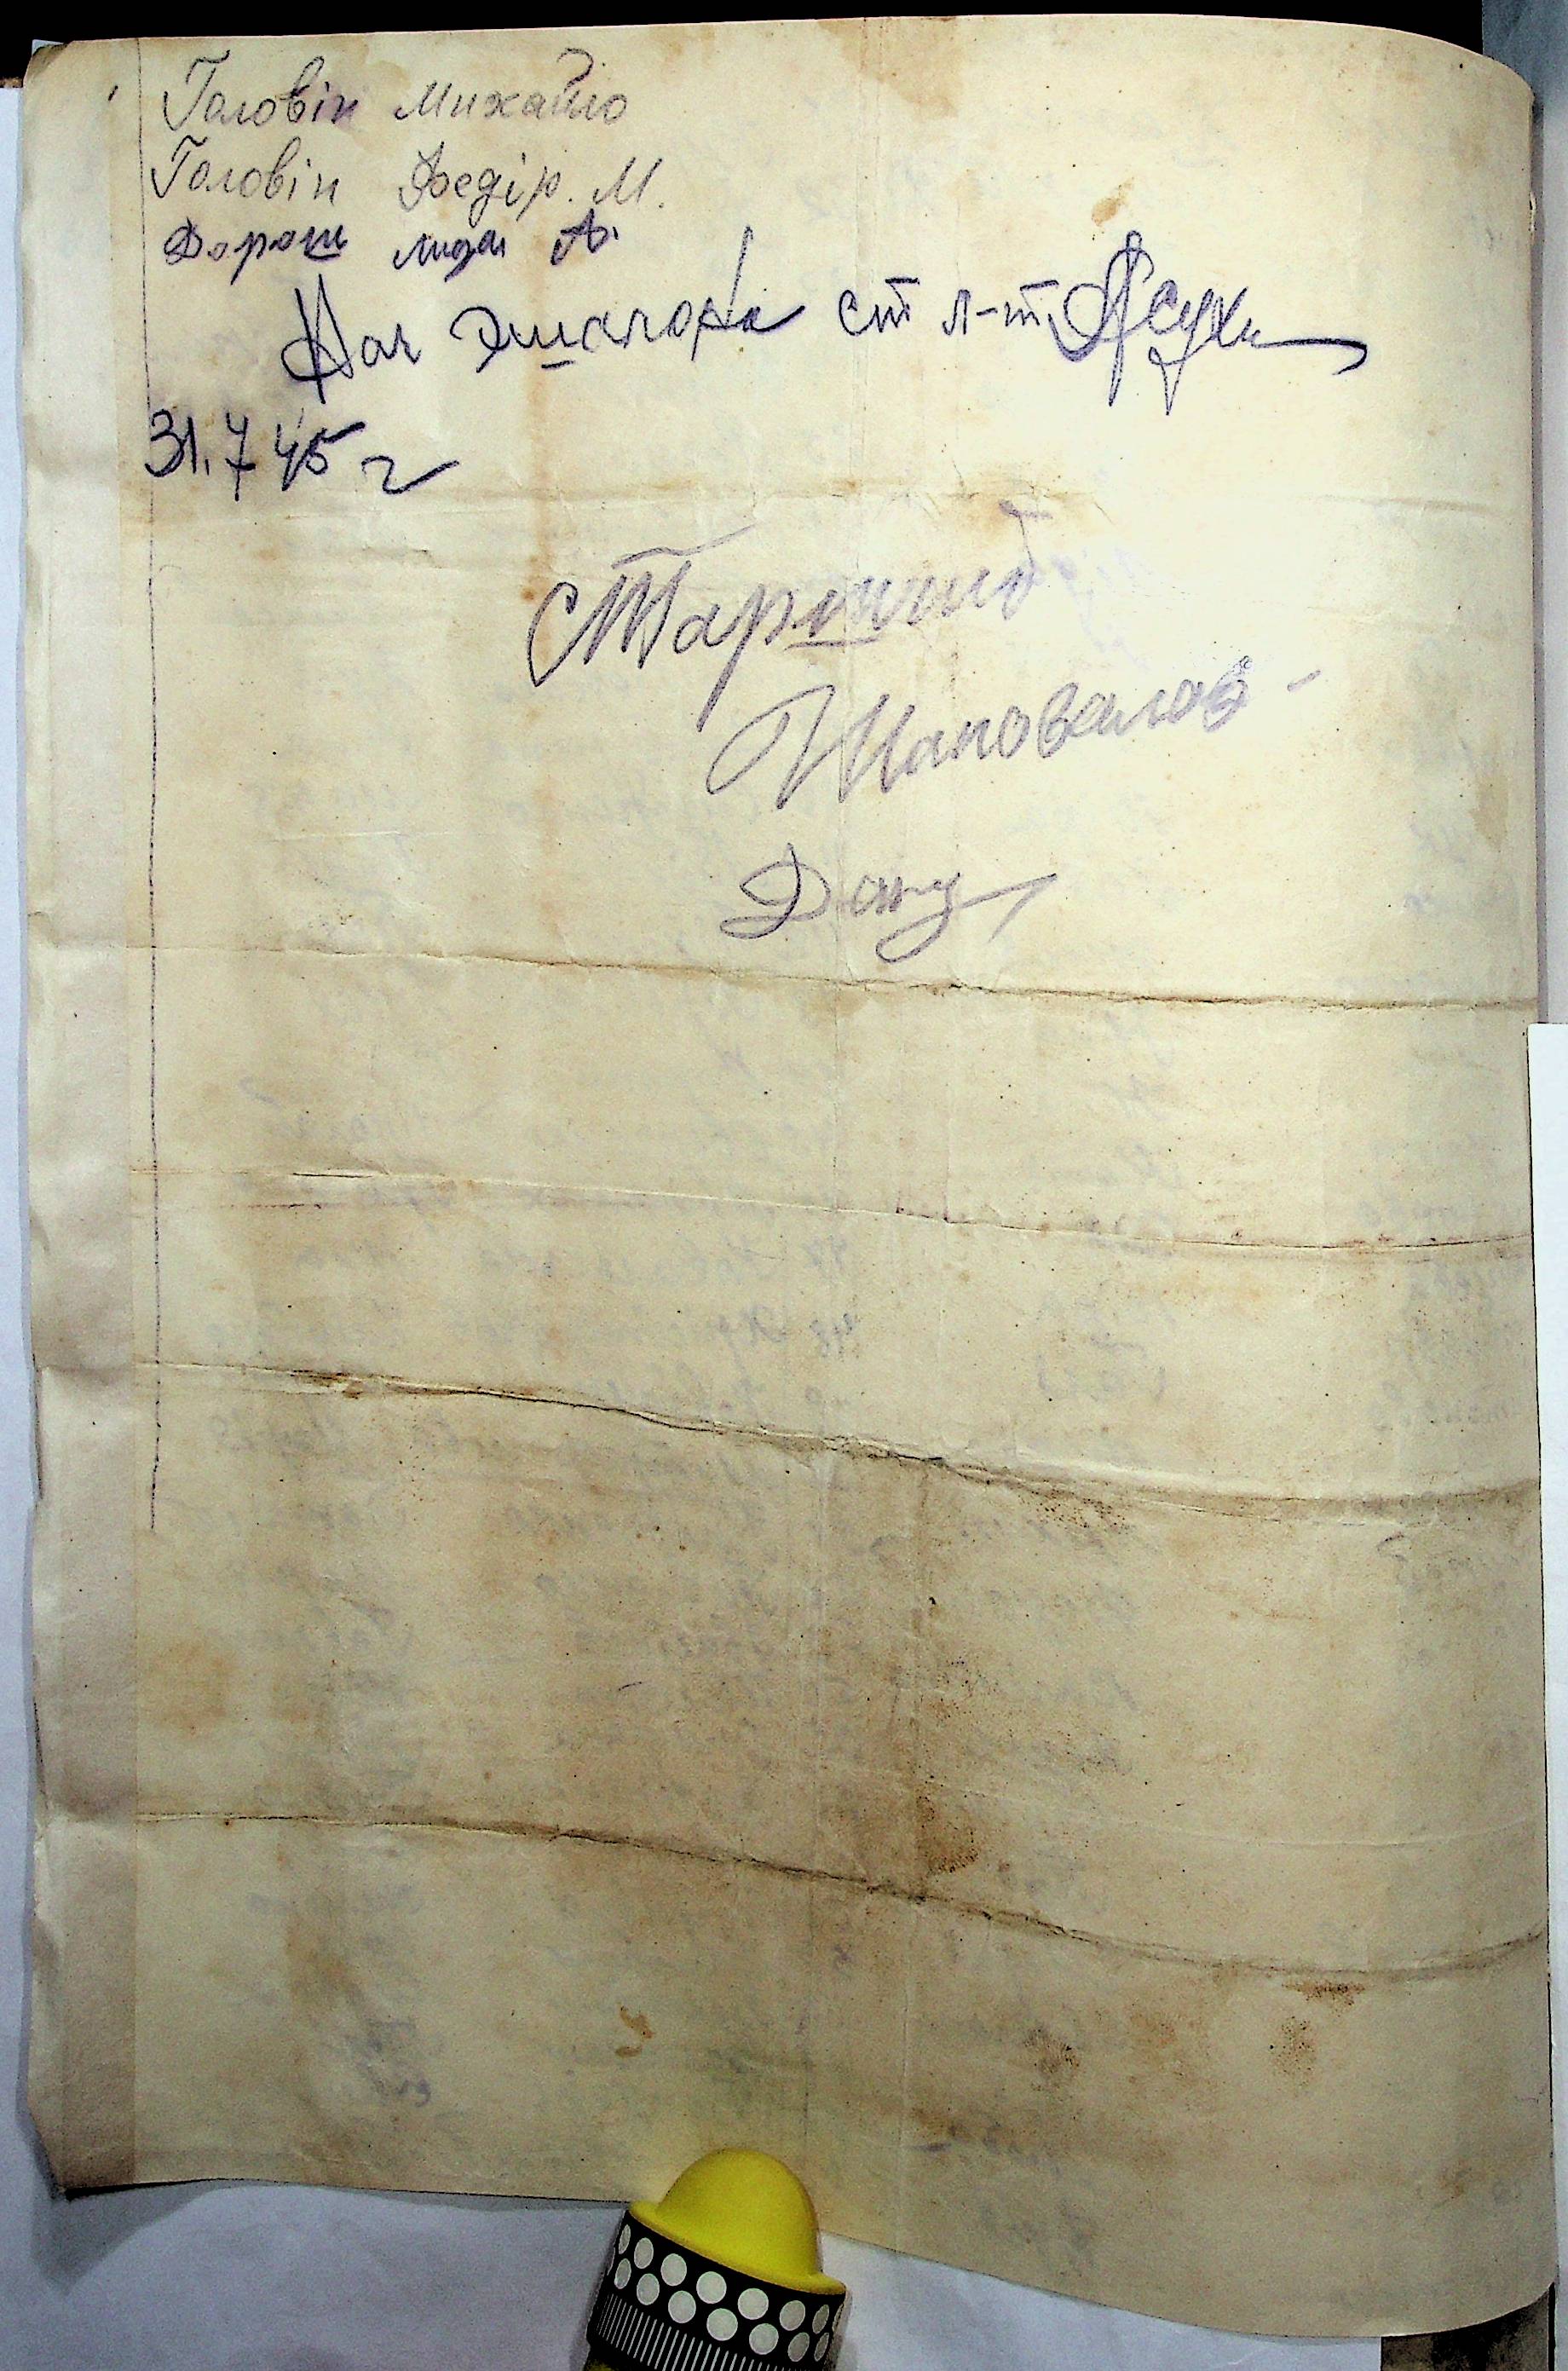 Головін Михайло
Головін Федір. М.
Дорош Лида А.
Нач эшалона ст л-т
31.7 45 г
Старший
Шаповалов